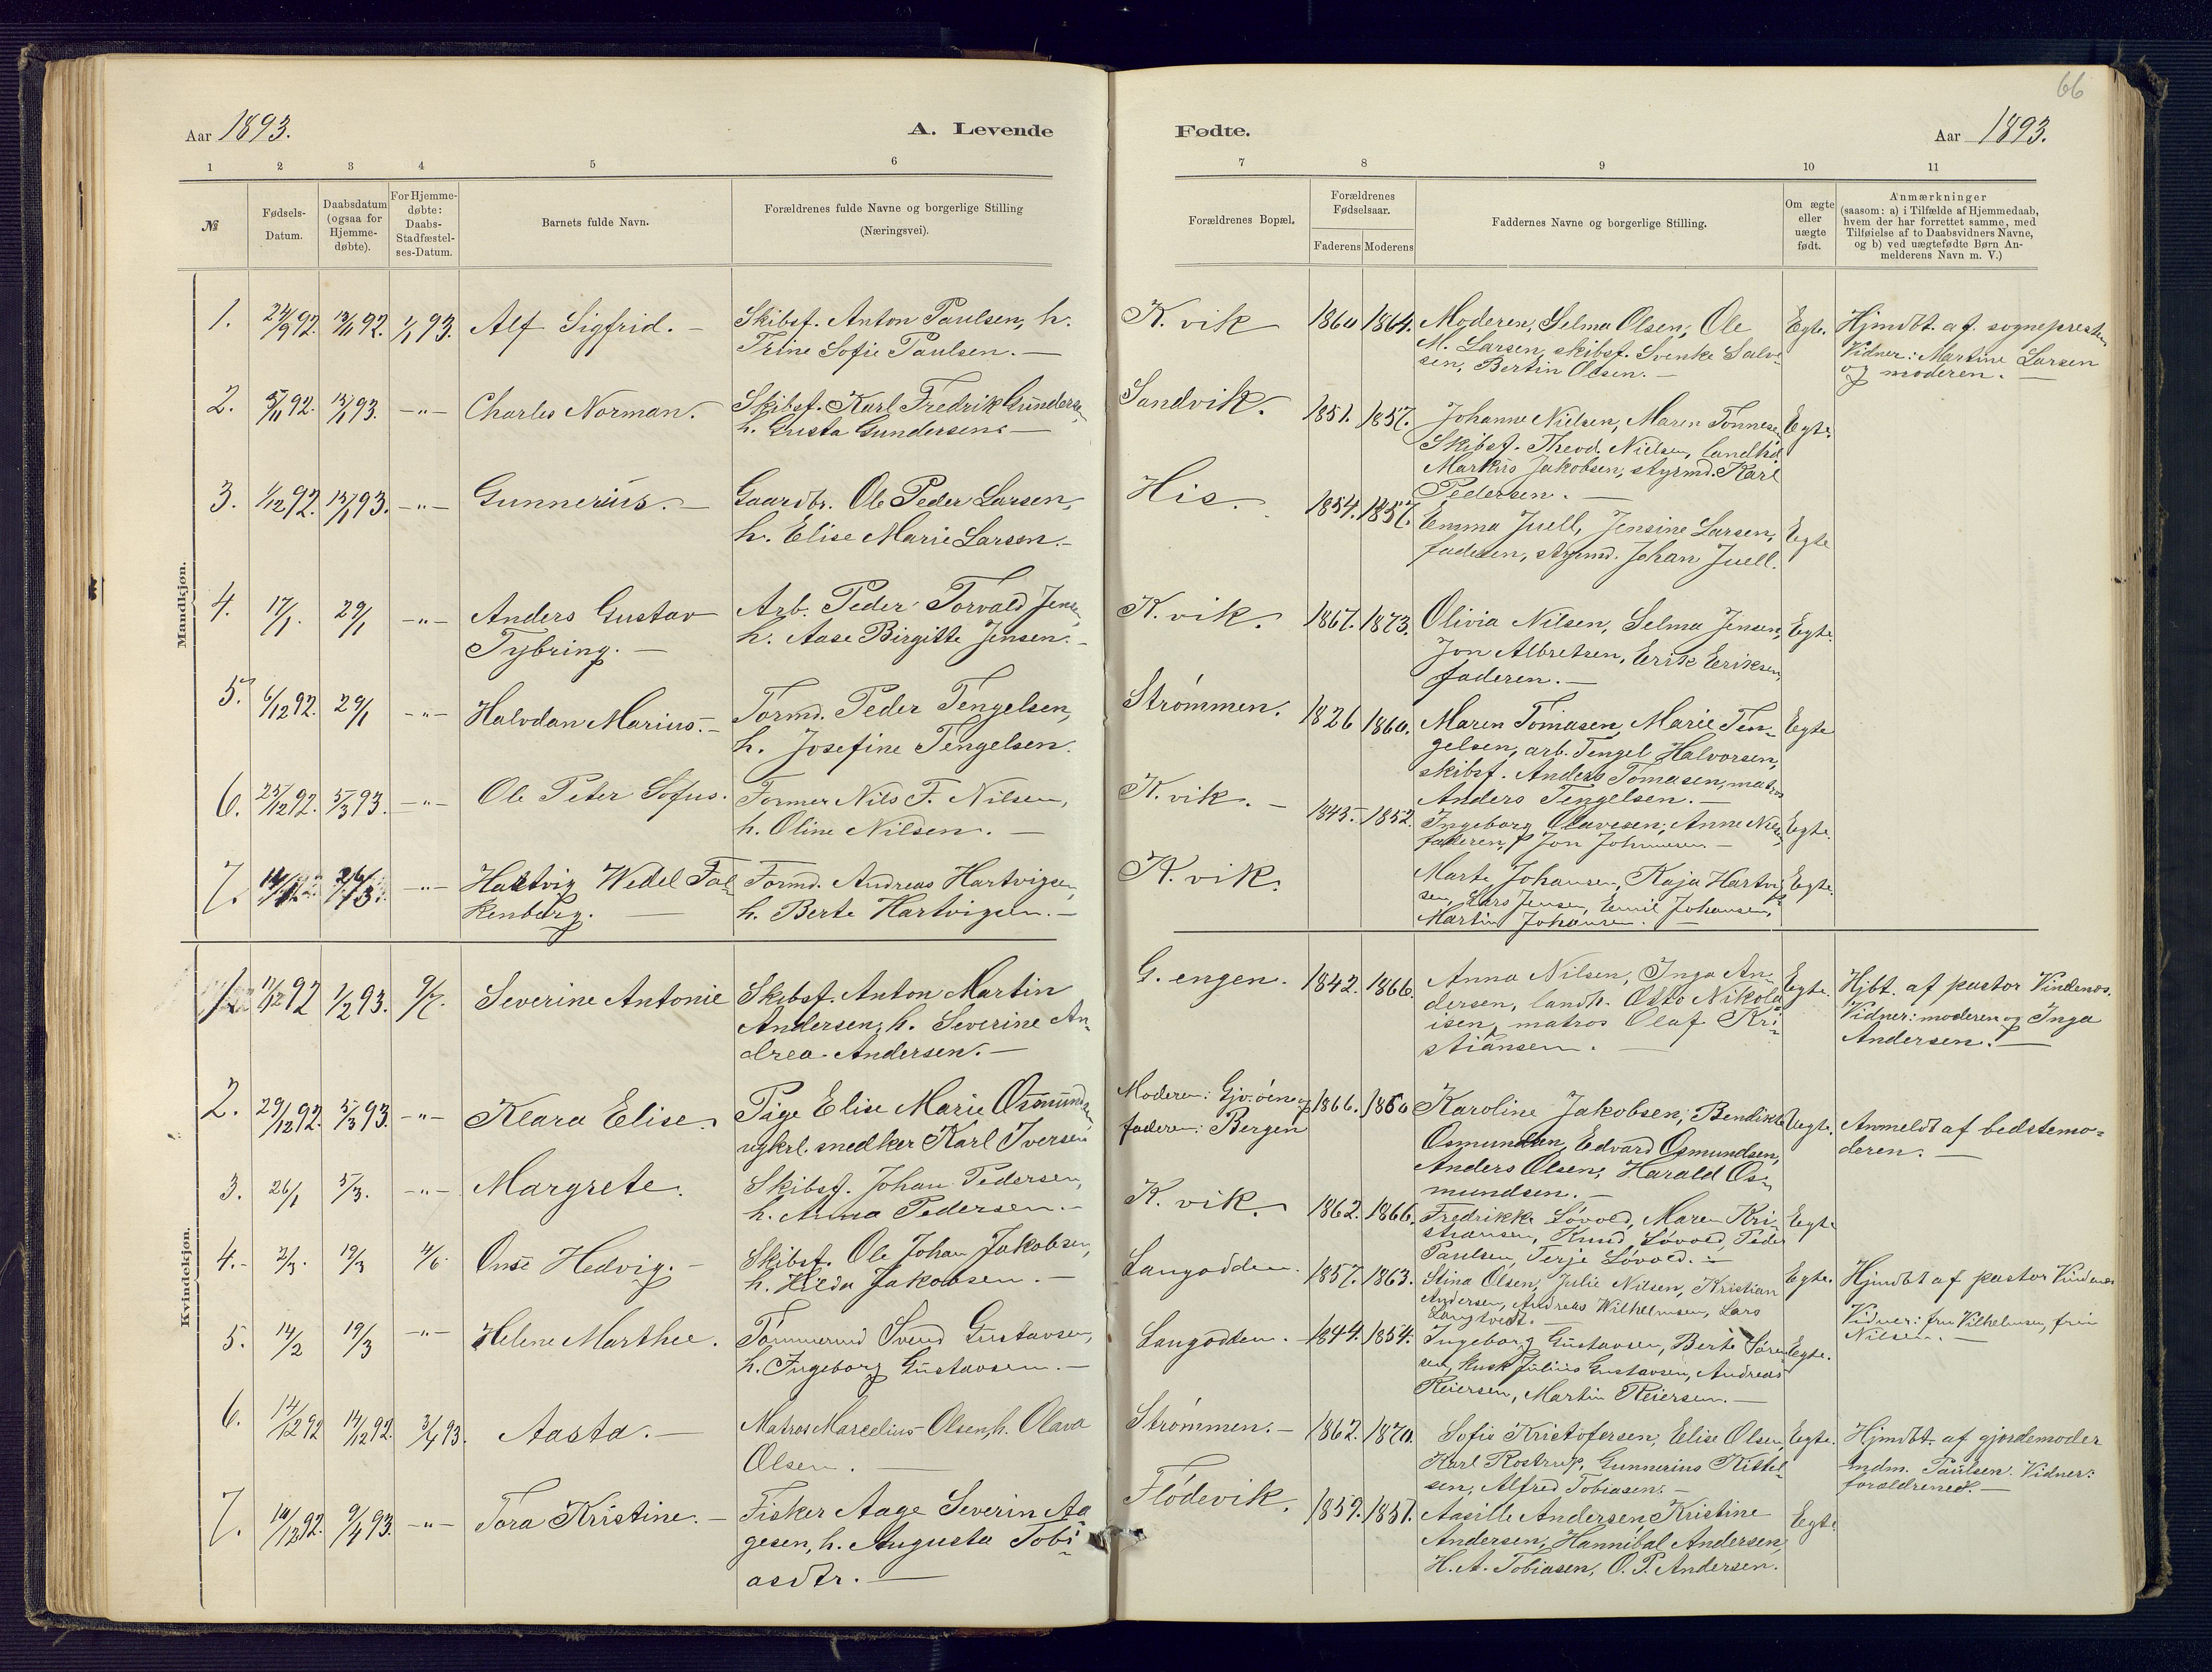 66
Aar 1893.
A. Levende
Fødte.
Aar 1893.
1 2 3 4 5 6
7 8 9 10 11
№
Fødsels-
Datum.
Daabsdatum
(ogsaa for
Hjemme-
døbte).
For Hjemme-
døbte:
Daabs-
Stadfæstel-
ses-Datum.
Barnets fulde Navn.
Forældrenes fulde Navne og borgerlige Stilling
(Næringsvei).
Forældrenes Bopæl.
Forældrenes
Fødselsaar.
Faderens Moderens
Faddernes Navne og borgerlige Stilling.
Om ægte
eller
uægte
født.
Anmærkninger
(saasom: a) i Tilfælde af Hjemmedaab,
hvem der har forrettet samme, med
Tilføielse af to Daabsvidners Navne,
og b) ved uægtefødte Børn An-
melderens Navn m. V.)
Mandkjøn.
1. 24/9 92. 13/11 92. 1/1 93. Alf Sigfrid. —
Skibsf. Anton Paulsen, h.
Trine Sofie Paulsen. —
K. vik 1860 1864.
Moderen, Selma Olsen, Ole
M. Larsen, skibsf. Svenke Salve-
sen, Bertin Olsen. —
Egte.
Hjmdbt. af sognepresten
Vidner: Martine Larsen
og moderen. —
2. 5/11 92. 15/1 93. —"— Charles Norman.
Skibsf. Karl Fredrik Gundersen
h. Gusta Gundersen. —
Sandvik. 1851. 1857.
Johanne Nielsen, Maren Tønnesen,
Skibsf. Theod. Nielsen, landhd.
Markus Jakobsen, styrmd. Karl
Pedersen. —
Egte.
3. 1/12 92. 15/1 93. —"— Gunnerius. —
Gaardbr. Ole Peder Larsen,
h. Elise Marie Larsen. —
His. 1854. 1857.
Emma Juell, Jensine Larsen,
faderen, styrmd. Johan Juell.
Egte
4. 17/1. 29/1 —"— Anders Gustav
Tybring. —
Arb. Peder Torvald Jensen,
h. Aase Birgitte Jensen. —
K. vik. 1867. 1873.
Olivia Nilsen, Selma Jensen,
Jon Albretsen, Erik Eriksen,
faderen. —
Egte.
5. 6/12 92. 29/1 —"— Halvdan Marius. —
Tørmd. Peder Tengelsen,
h. Josefine Tengelsen.
Strømmen. 1826 1860.
Maren Tomasen, Marie Ten-
gelsen, arb. Tengel Halvorsen,
skibsf. Anders Tomasen, matros
Anders Tengelsen. —
Egte
6. 25/12 92. 5/3 93. —"— Ole Peter Sofus.
Former Nils F. Nilsen,
h. Oline Nilsen. —
K. vik. — 1845. 1852.
Ingeborg Olavesen, Anne Nilsen
faderen, Jon Johnnesen —
Egte.
7. —"— Hartvig Wedel Fal-
kenberg. —
Formd. Andreas Hartvigsen,
h. Berte Hartvigsen. —
K. vik.
Marte Johansen, Kaja Hartvig-
sen, Lars Jensen, Emil Johansen,
Martin Johansen. —
Egte.
Kvindekjøn.
1. 17/12 92 1/2 93. 9/7. Severine Antonie
Skibsf. Anton Martin
Andersen, h. Severine An-
drea Andersen. —
G. engen. 1842. 1866.
Anna Nilsen, Inga An-
dersen, landh. Otto Nikola-
isen, matros Olaf Kri-
stiansen. —
Egte.
Hjbt. af pastor Vindenes.
Vidner: moderen og Inga
Andersen. —
2. 29/12 92. 5/3 93. —"— Klara Elise.
Pige Elise Marie Osmundsen,
ugkrl. snedker Karl Iversen
Moderen: Gjvøen og
faderen: Bergen
1866. 1860
Karoline Jakobsen, Bendikte
Osmundsen, Edvard Osmundsen,
Anders Olsen, Harald Os-
mundsen. —
Uegte.
Anmeldt af bedstemo-
deren. —
3. 26/1 5/3. —"— Margrete.
Skibsf. Johan Pedersen,
h. Anna Pedersen. —
K. vik. 1862. 1866.
Fredrikke Løvold, Maren Kri-
stiansen, Knud Løvold, Peder
Paulsen, Terje Løvold. —
Egte
4. 2/3. 19/3 4/6. Onse Hedvig. —
Skibsf. Ole Johan Jakobsen,
h. Hilda Jakobsen. —
Langodden. 1857. 1863.
Stina Olsen, Julie Nilsen, Kristian
Andersen, Andreas Wilhelmsen, Lars
Langtvedt. —
Egte.
Hjmdbt af pastor Vindenes
Vidner: fru Vilhelmsen, fru
Nilsen. —
5. 14/2 19/3 —"— Helene Marthee.
Tømmermd Svend Gustavsen,
h. Ingeborg Gustavsen. —
Langodden. — 1844. 1854.
Ingeborg Gustavsen, Berte Søren-
sen, kusk Julius Gustavsen, Andreas
Reiersen, Martin Reiersen. —
Egte.
6. 14/12 92 14/12 92. 3/4 93. Aasta. —
Matros Marcelius Olsen, h. Olava
Olsen. —
Strømmen. — 1862. 1870.
Sofie Kristofersen, Elise Olsen,
Karl Rostrup, Gunnerius Kittel-
sen, Alfred Tobiasen. —
Egte.
Hjmdbt. af gjordemoder
mdm. Paulsen. Vidner:
forældrene. —
7. 10/12 92. 9/4 93. —"— Tora Kristine. —
Fisker Aage Severin Aa-
gesen, h. Augusta Tobi-
asdtr. —
Flødevik. 1859. 1851.
Aasille Andersen Kristine
Andersen, Hannibal Andersen,
H. A. Tobiasen, O. P. Andersen.
Egte